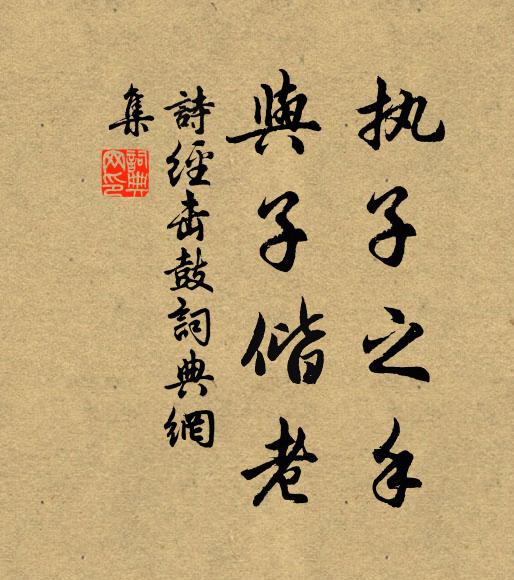 执子之手
與子偕老
詩經击鼓詞典網
集
詞典
网印